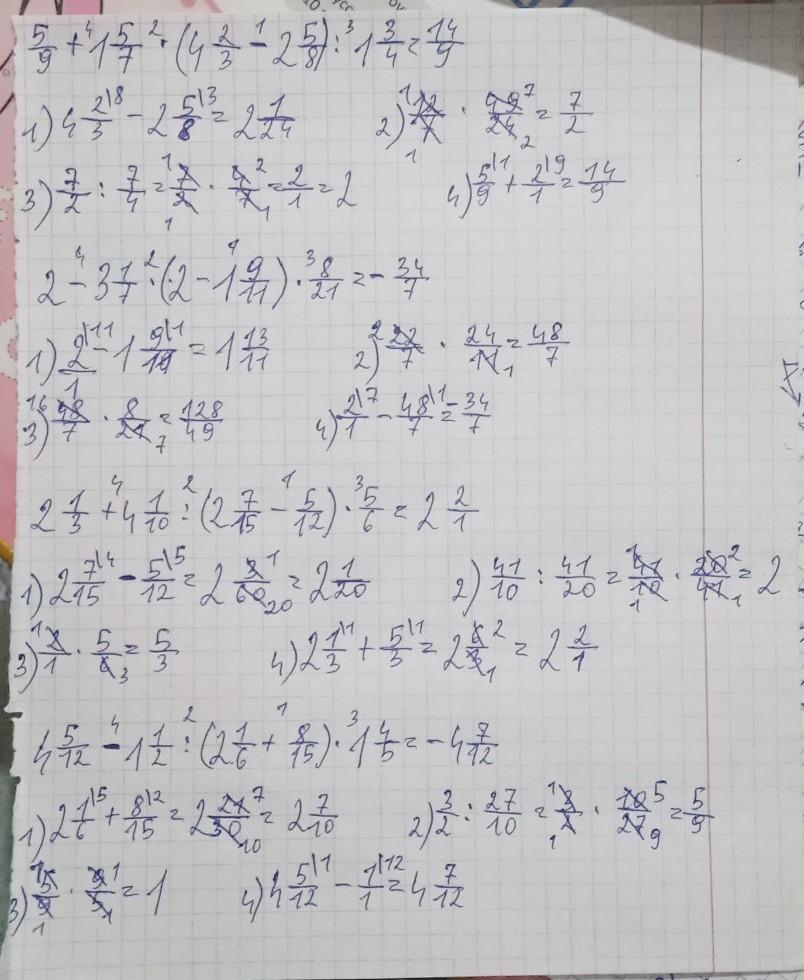 5/9 + 1 5/7 · (4 2/3 - 2 5/8) : 1 3/4 = 14/9
1) 4 2/3 - 2 5/8 = 2 1/24   2) 12/7 · 49/24 = 7/2
3) 7/2 : 7/4 = 7/2 · 4/7 = 2/1 = 2   4) 5/9 + 2/1 = 14/9
2 - 3 1/7 : (2 - 1 9/11) · 8/21 = - 34/7
1) 2/1 - 1 9/11 = 1 13/11   2) 22/7 · 24/11 = 48/7
3) 48/7 · 8/21 = 128/49   4) 2/1 - 48/7 = - 34/7
2 1/3 + 4 1/10 : (2 7/15 - 5/12) · 5/6 = 2 2/1
1) 2 7/15 - 5/12 = 2 3/60 = 2 1/20   2) 41/10 : 41/20 = 41/10 · 20/41 = 2
3) 2/1 · 5/6 = 5/3   4) 2 1/3 + 5/3 = 2 6/3 = 2 2/1
4 5/12 - 1 1/2 : (2 1/6 + 8/15) · 1 4/5 = - 4 7/12
1) 2 1/6 + 8/15 = 2 21/30 = 2 7/10   2) 3/2 : 27/10 = 3/2 · 10/27 = 5/9
3) 5/9 · 9/5 = 1   4) 4 5/12 - 1/1 = 4 7/12